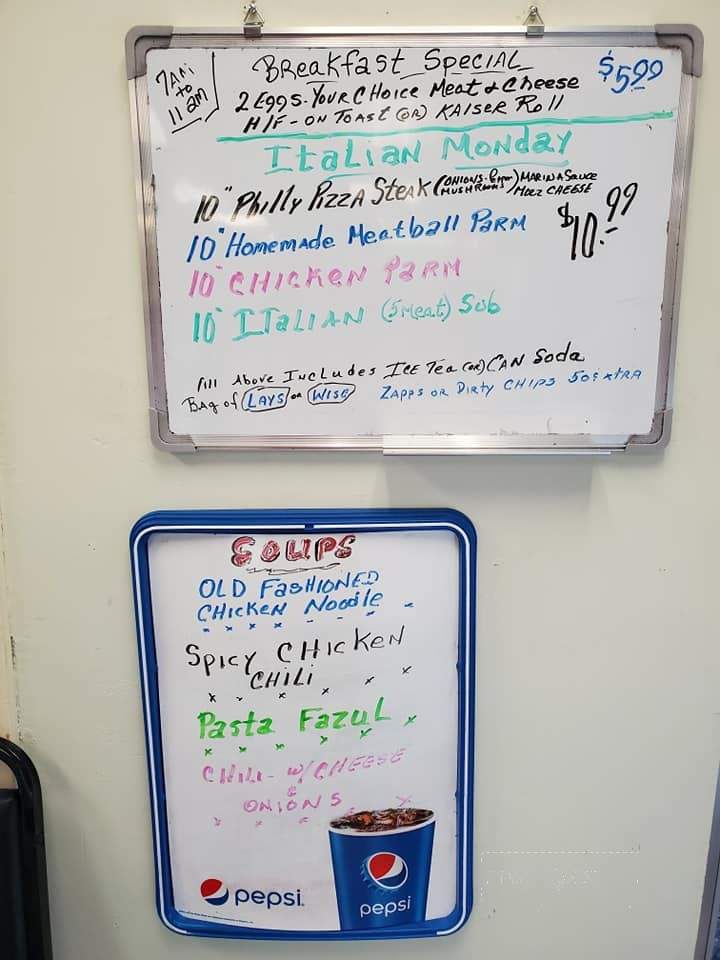 7AM
to
11am
Breakfast Special
$5.99
2 Eggs. Your Choice Meat & Cheese
H/F - ON TOAST (OR) KAISER Roll
Italian Monday
10" Philly Pizza Steak (ONIONS. Pepper MUSHROOMS) / MARINA SAUCE MOZZ CHEESE
10" Homemade Meatball Parm
$10.99
10" CHICKEN PARM
10" ITALIAN (5 Meat) Sub
All Above Includes ICE Tea (OR) CAN Soda
BAG of LAYS or WISE
ZAPPS OR DIRTY CHIPS 50¢ XTRA
SOUPS
OLD FASHIONED
CHICKEN Noodle
SPICY CHICKEN
CHILI
Pasta Fazul
CHILI - W/ CHEESE
&
ONIONS
pepsi
pepsi